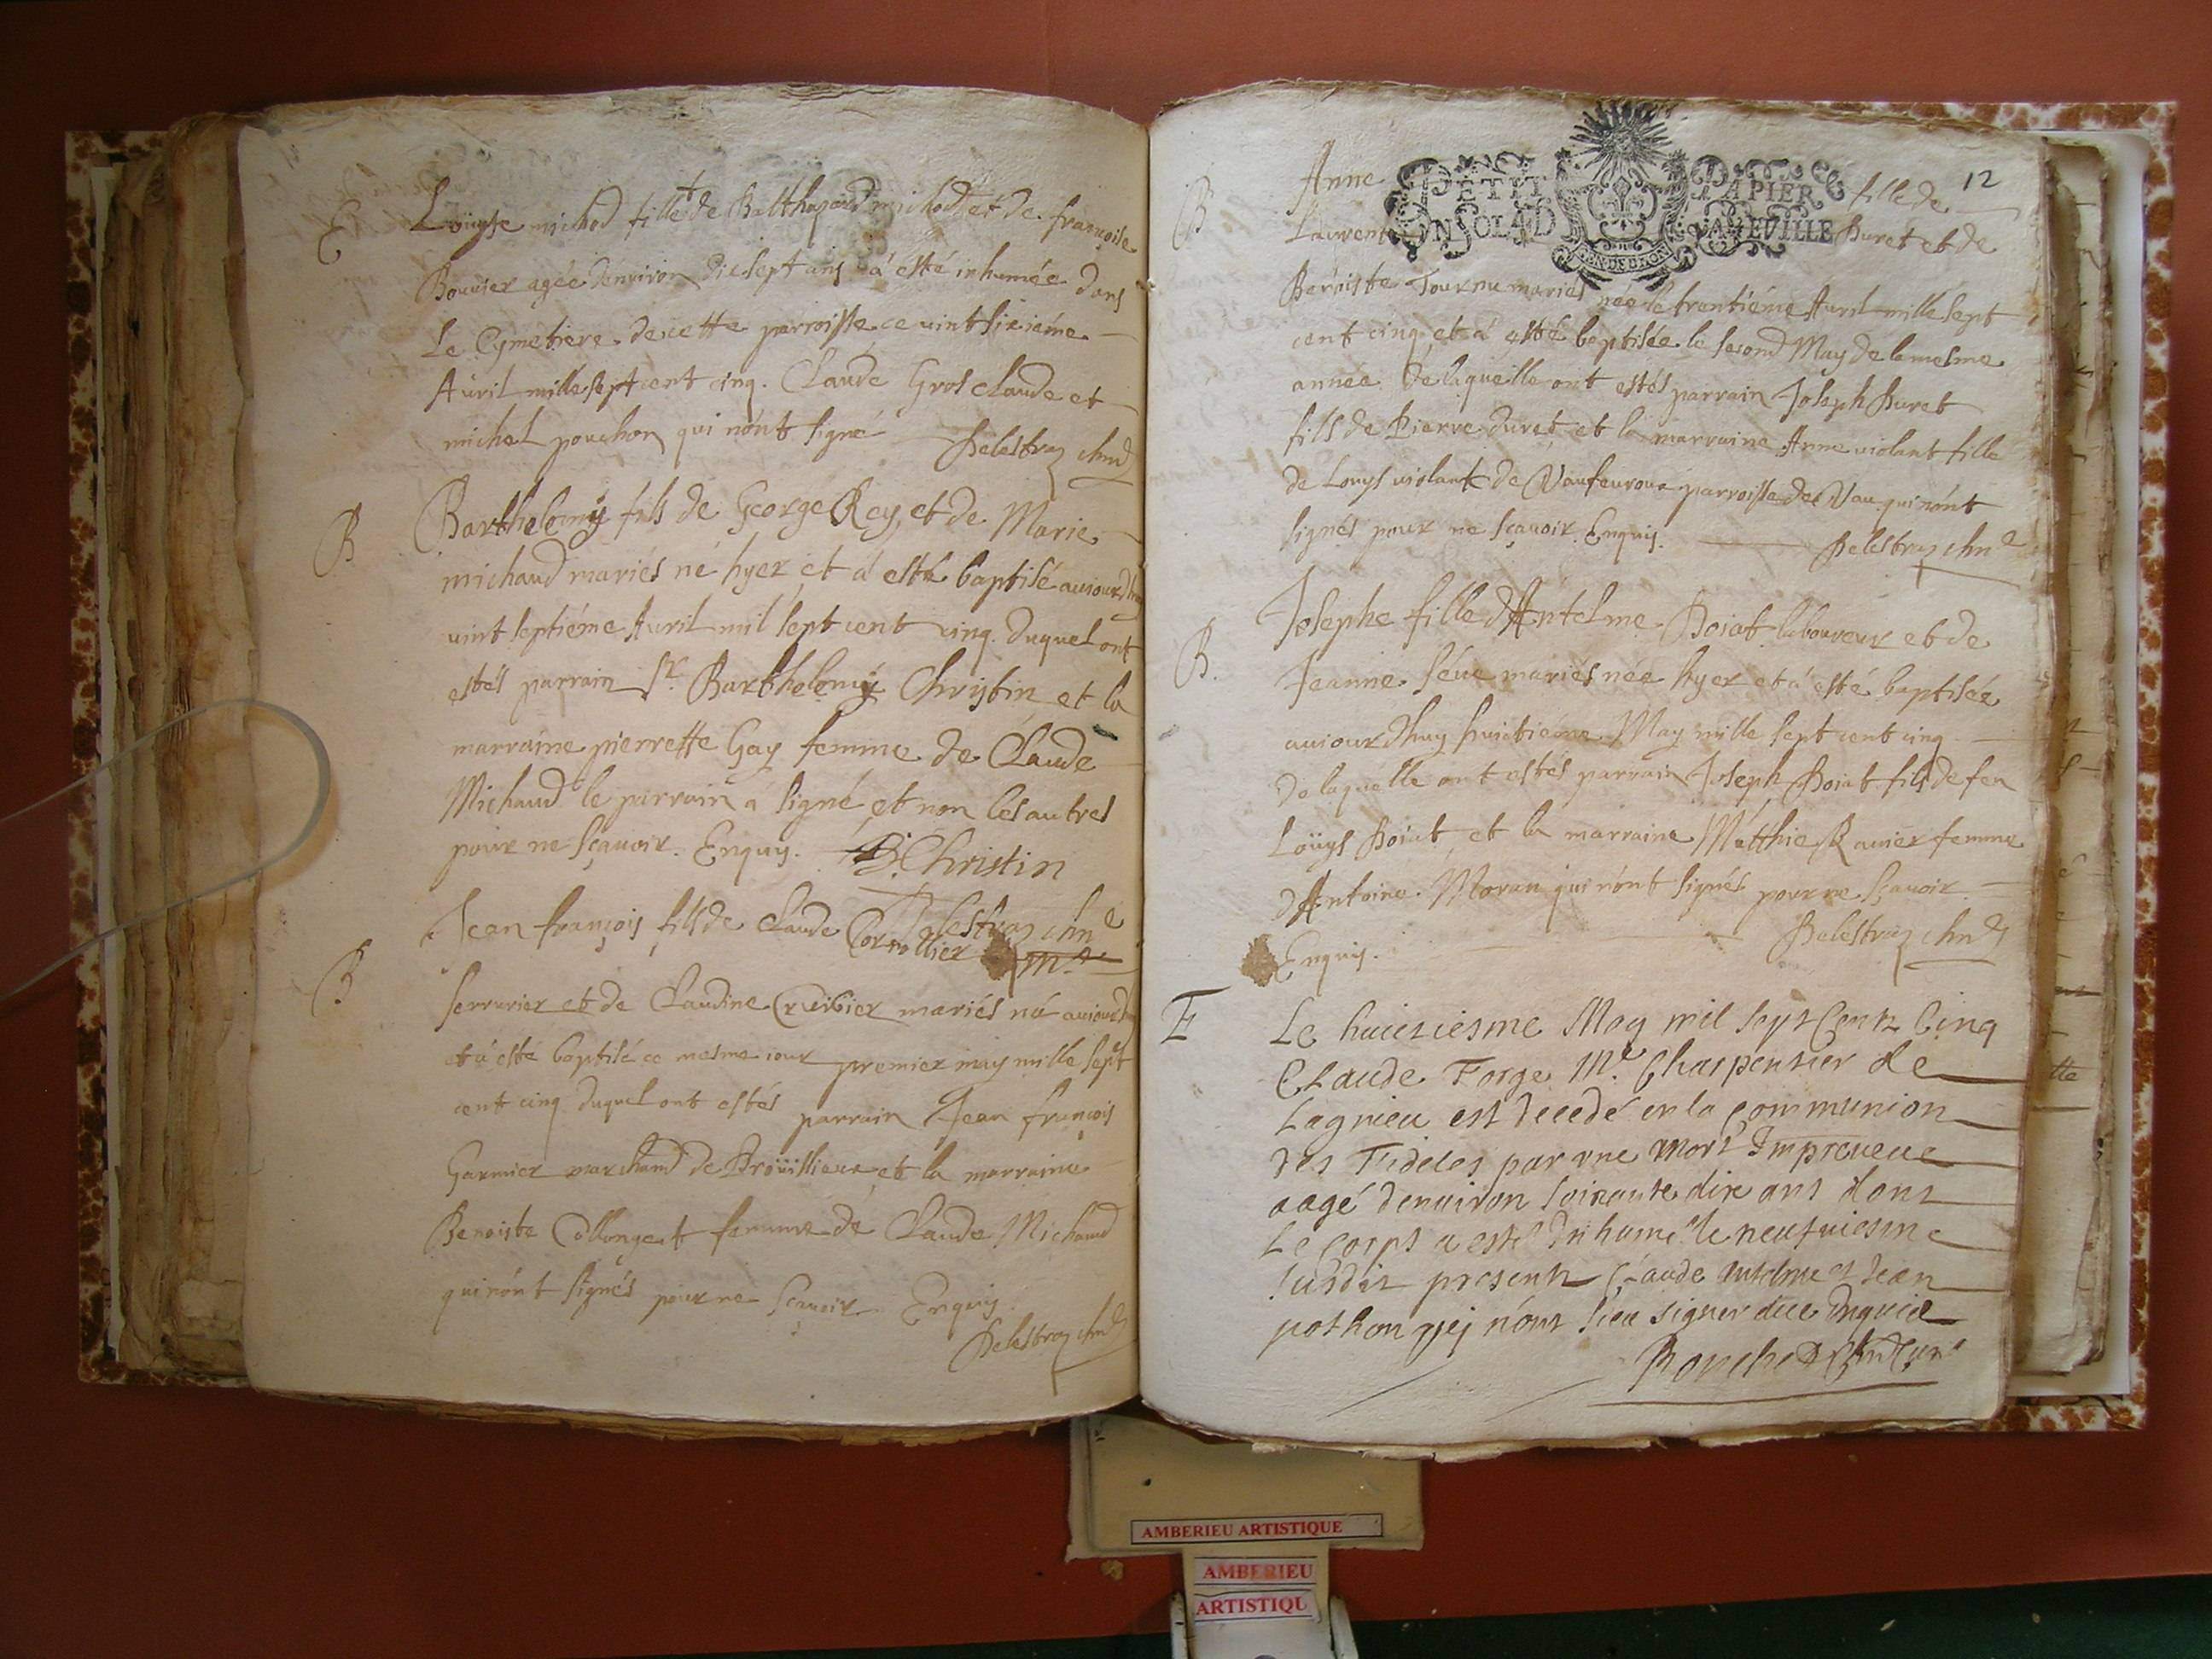 E
Louyse michod fille de Balthazard michod et de françoise
Bouuier agée denuiron dixsept ans a esté inhumée dans
Le Cymetiere de cette parroisse ce uint sixiéme
Auril mille sept cent cinq. Claude Gros claude et
michel pouchon qui n'ont signé
Delestraz chne
B
Barthelemy fils de George Rey, et de Marie
michaud mariés né hyer et á esté baptisé auiourdhuy
uint septiéme Auril mil sept cent cinq. duquel ont
estés parrain Sr. Barthelemy Christin et la
marraine pierrette Gay femme de Claude
Michaud le parrain a signé et non les autres
pour ne sçauoir. Enquis. B. Christin
Delestraz chne
B
Jean françois fils de Claude Cornollier mre
serrurier et de Claudine Cruibier mariés né auiourdhuy
et a esté baptisé ce mesme iour premier may mille sept
cent cinq duquel ont estés parrain Jean françois
Garnier marchand de Broüillieux et la marraine
Benoiste Collongeat femme de Claude Michaud
qui n'ont signés pour ne sçauoir Enquis
Delestraz chne
12
PETIT PAPIER
UN SOL 4 D LA FEUILLE
B
Anne fille de
Laurent Duret et de
Benoiste Tournu mariés née le trentiéme Auril mille sept
cent cinq et a esté baptisée le second May de la mesme
annee. De laqueille ont estés parrain Joseph Duret
fils de Pierre duret et la marraine Anne violant fille
de Louys violant de Vaufeuroux parroisse de Vau qui n'ont
signés pour ne sçauoir. Enquis.
Delestraz chne
B.
Josephe fille d'Antelme Boiat laboureur et de
Jeanne Séue mariés née hyer et a esté baptisée
auiourdhuy huictiéme May mille sept cent cinq
de laquelle ont estés parrain Joseph Boiat fils de feu
Loüys Boiat et la marraine Matthie Rauier femme
d'Antoine Moran qui n'ont signés pour ne sçauoir
Enquis.
Delestraz chne
E
Le huictiesme May mil sept Cent Cinq
Claude Forge Me. Charpentier de
Lagnieu est decedé en la communion
des Fideles par une mort Impreueue
aagé denuiron soixante dix ans dont
Le corps a esté Inhumé le neufuiesme
susdit presents Claude Antelme et Jean
pothon qui n'ont sceu signer de ce Enquis